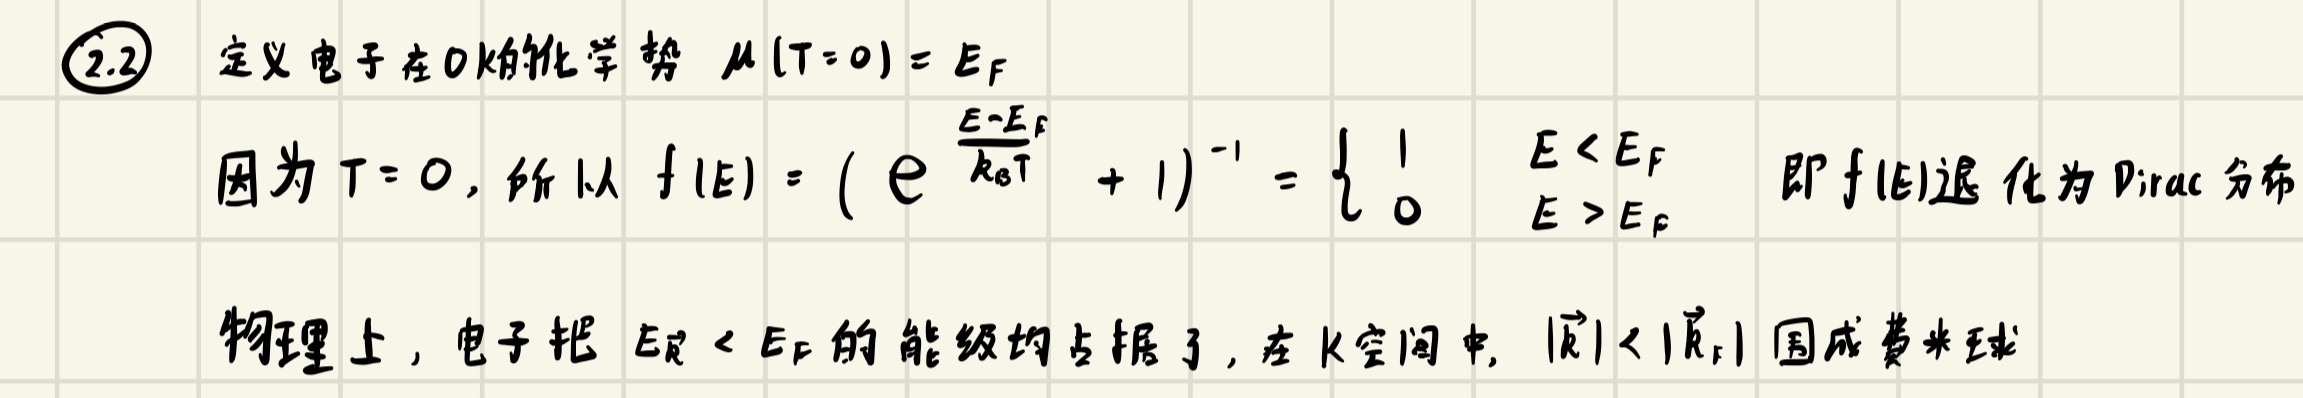 2.2 定义电子在0K的化学势 μ(T=0) = E_F
因为 T=0, 所以 f(E) = ( e^{\frac{E-E_F}{k_BT}} + 1)^{-1} = { 1 E < E_F 0 E > E_F 即f(E)退化为Dirac分布
物理上, 电子把 E_{\vec{k}} < E_F 的能级均占据了, 在K空间中, |\vec{k}| < |\vec{k}_F| 围成费米球